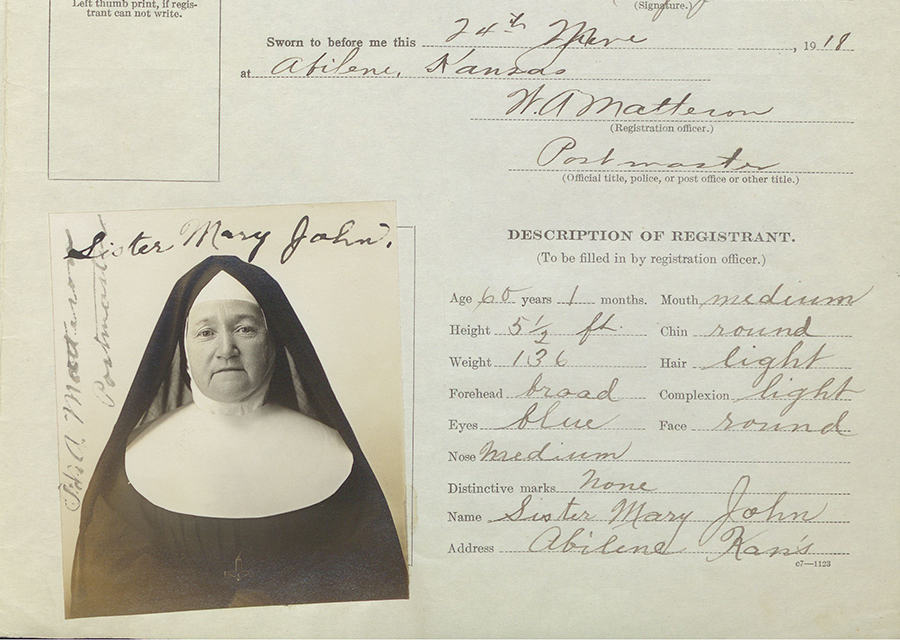 Left thumb print, if regis-
trant can not write.
(Signature.)
Sworn to before me this 24th June, 1918
at Abilene, Kansas
W. A Matteson
(Registration officer.)
Postmaster
(Official title, police, or post office or other title.)
Sister Mary John.
W. A. Matteson
Postmaster
DESCRIPTION OF REGISTRANT.
(To be filled in by registration officer.)
Age 60 years 1 months. Mouth medium
Height 5½ ft. Chin round
Weight 136 Hair light
Forehead broad Complexion light
Eyes blue Face round
Nose Medium
Distinctive marks None
Name Sister Mary John
Address Abilene Kan's
c7—1123